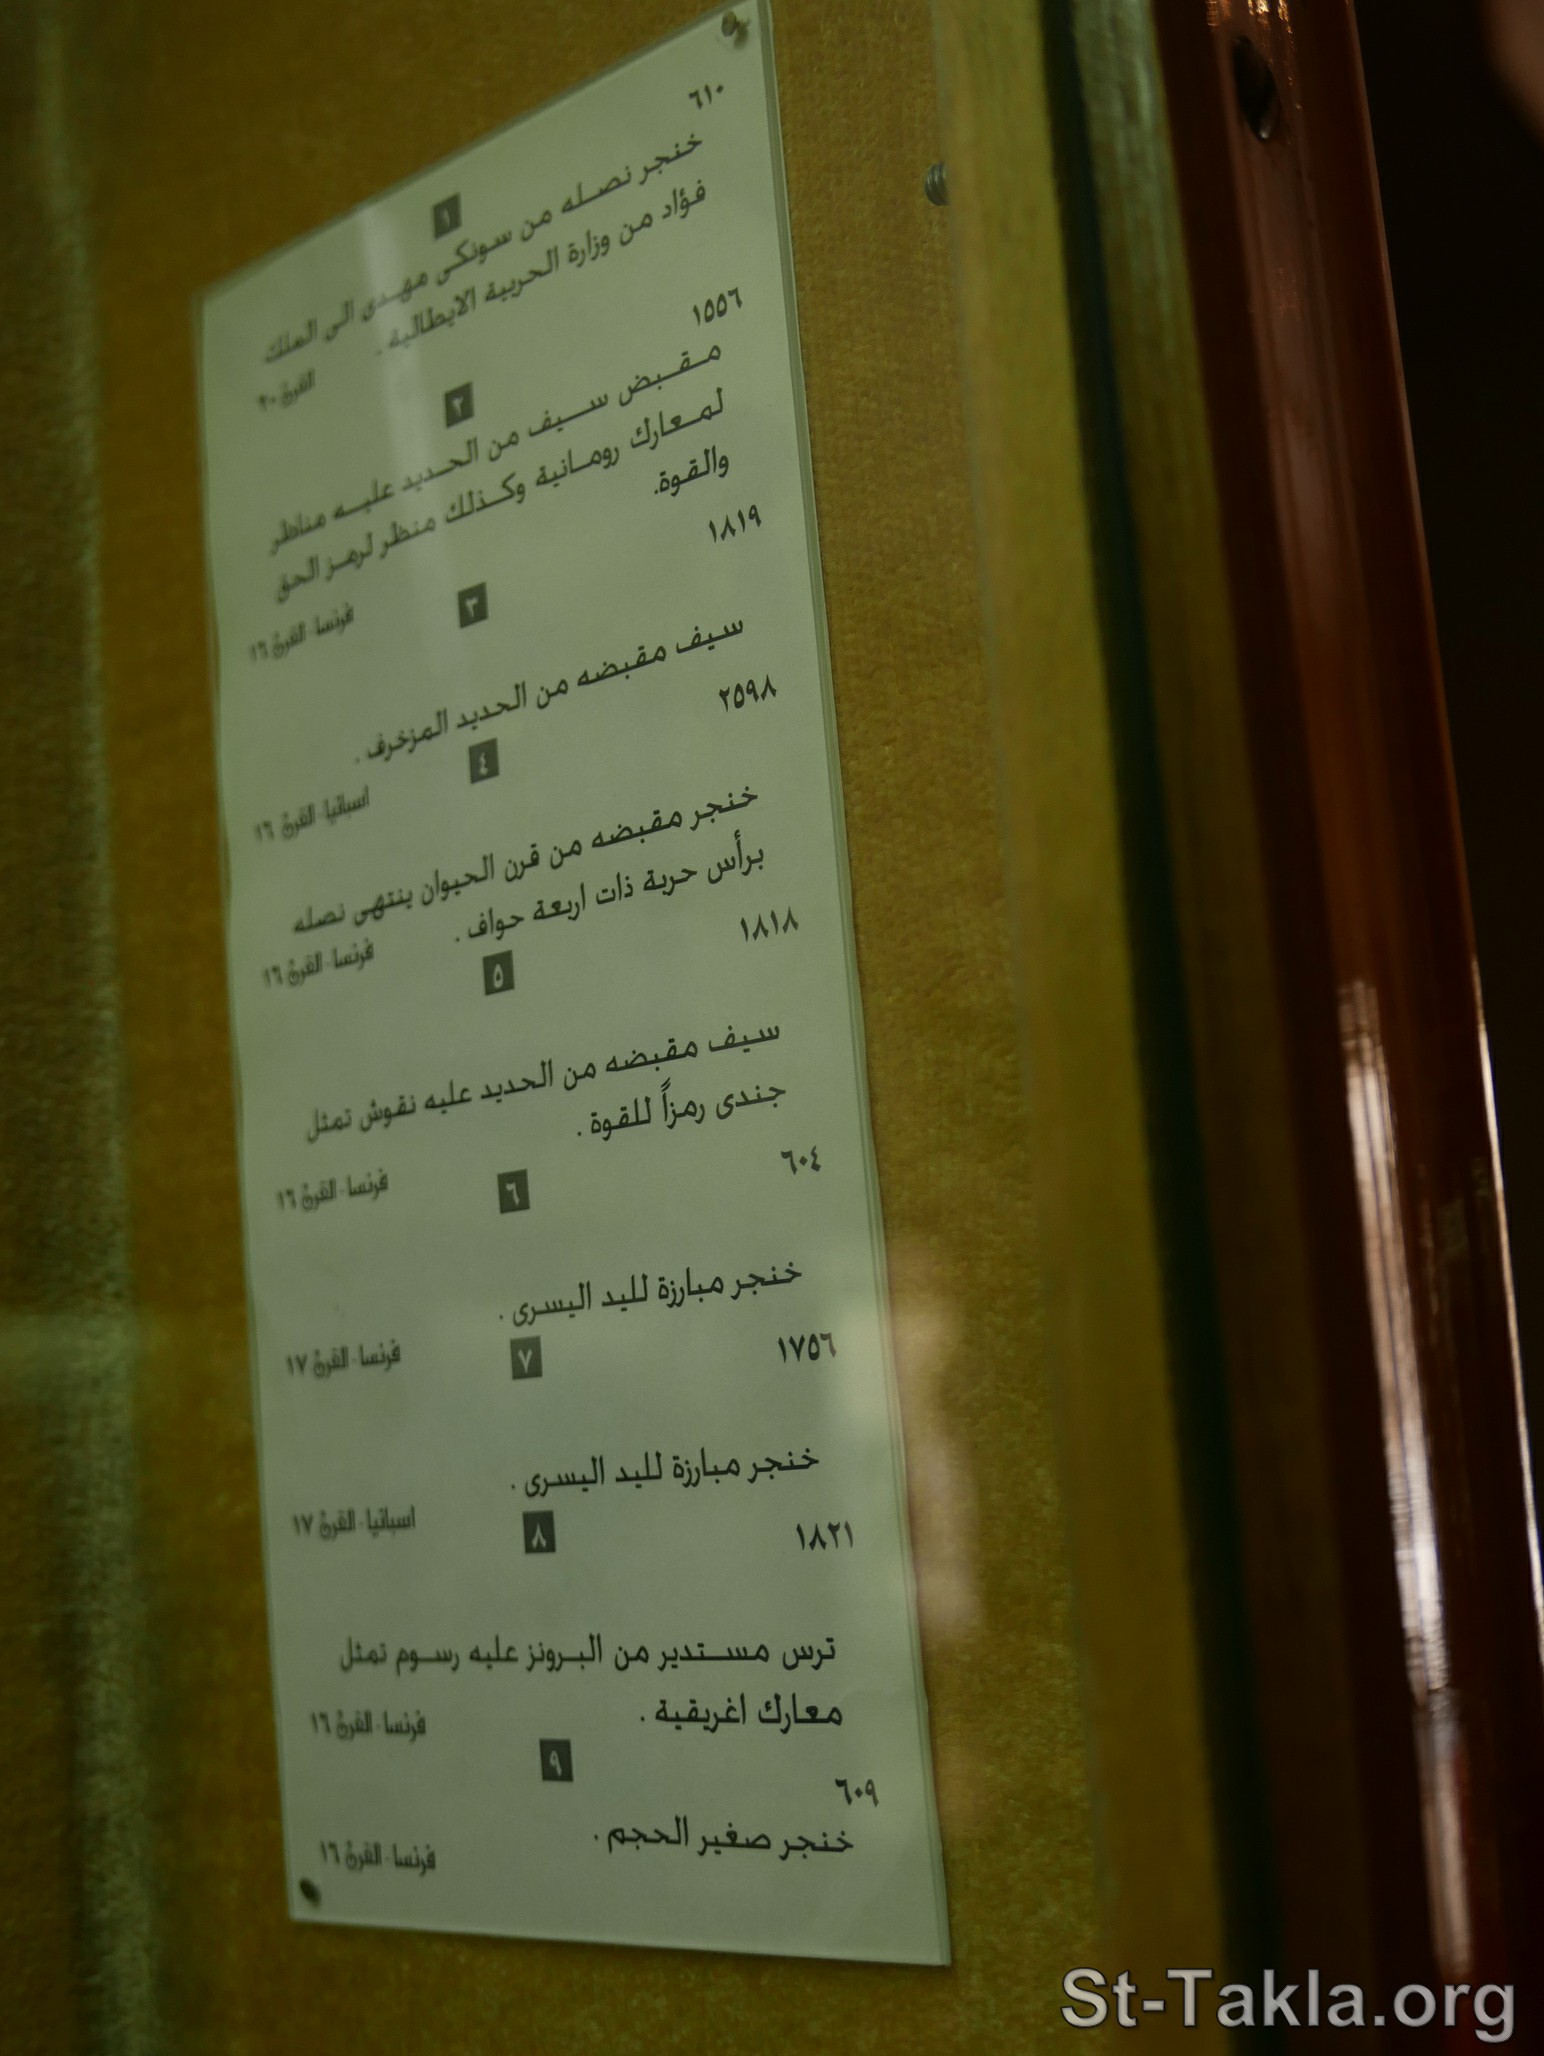 ٦١٠
١
خنجر نصله من سونكى مهدى الى الملك
فؤاد من وزارة الحربية الايطالية .
القرن ٢٠
١٥٥٦
٢
مقبض سيف من الحديد عليه مناظر
لمعارك رومانية وكذلك منظر لرمز الحق
والقوة.
فرنسا - القرن ١٦
١٨١٩
٣
سيف مقبضه من الحديد المزخرف .
اسبانيا - القرن ١٦
٢٥٩٨
٤
خنجر مقبضه من قرن الحيوان ينتهى نصله
برأس حربة ذات اربعة حواف .
فرنسا - القرن ١٦
١٨١٨
٥
سيف مقبضه من الحديد عليه نقوش تمثل
جندى رمزاً للقوة .
فرنسا - القرن ١٦
٦٠٤
٦
خنجر مبارزة لليد اليسرى .
فرنسا - القرن ١٧
١٧٥٦
٧
خنجر مبارزة لليد اليسرى .
اسبانيا - القرن ١٧
١٨٢١
٨
ترس مستدير من البرونز عليه رسوم تمثل
معارك اغريقية .
فرنسا - القرن ١٦
٦٠٩
٩
خنجر صغير الحجم .
فرنسا - القرن ١٦
St-Takla.org